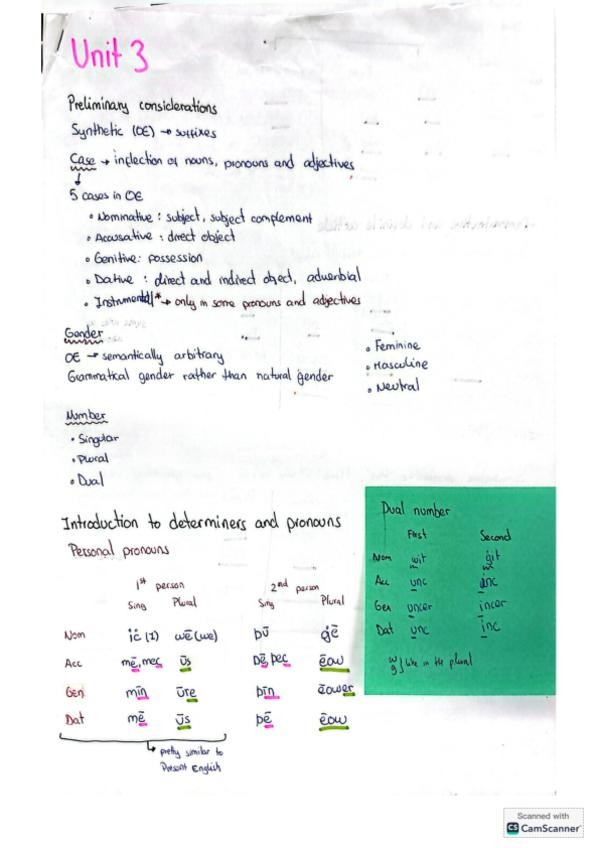 Unit 3
Preliminary considerations
Synthetic (OE) → suffixes
Case → inflection of nouns, pronouns and adjectives
↓
5 cases in OE
• Nominative : subject, subject complement
• Accusative : direct object
• Genitive: possession
• Dative : direct and indirect object, adverbial
• Instrumental* → only in some pronouns and adjectives
Gender
OE → semantically arbitrary
Grammatical gender rather than natural gender
• Feminine
• Masculine
• Neutral
Number
• Singular
• Plural
• Dual
Introduction to determiners and pronouns
Personal pronouns
1st person 2nd person
Sing Plural Sing Plural
Nom iċ (I) wē (we) þū ġē
Acc mē, mec ūs þē, þec ēow
Gen mīn ūre þīn ēower
Dat mē ūs þē ēow
↳ pretty similar to
Present English
Dual number
First Second
Nom wit ġit
Acc unc inc
Gen uncer incer
Dat unc inc
w
g } like in the plural
Scanned with
CS CamScanner